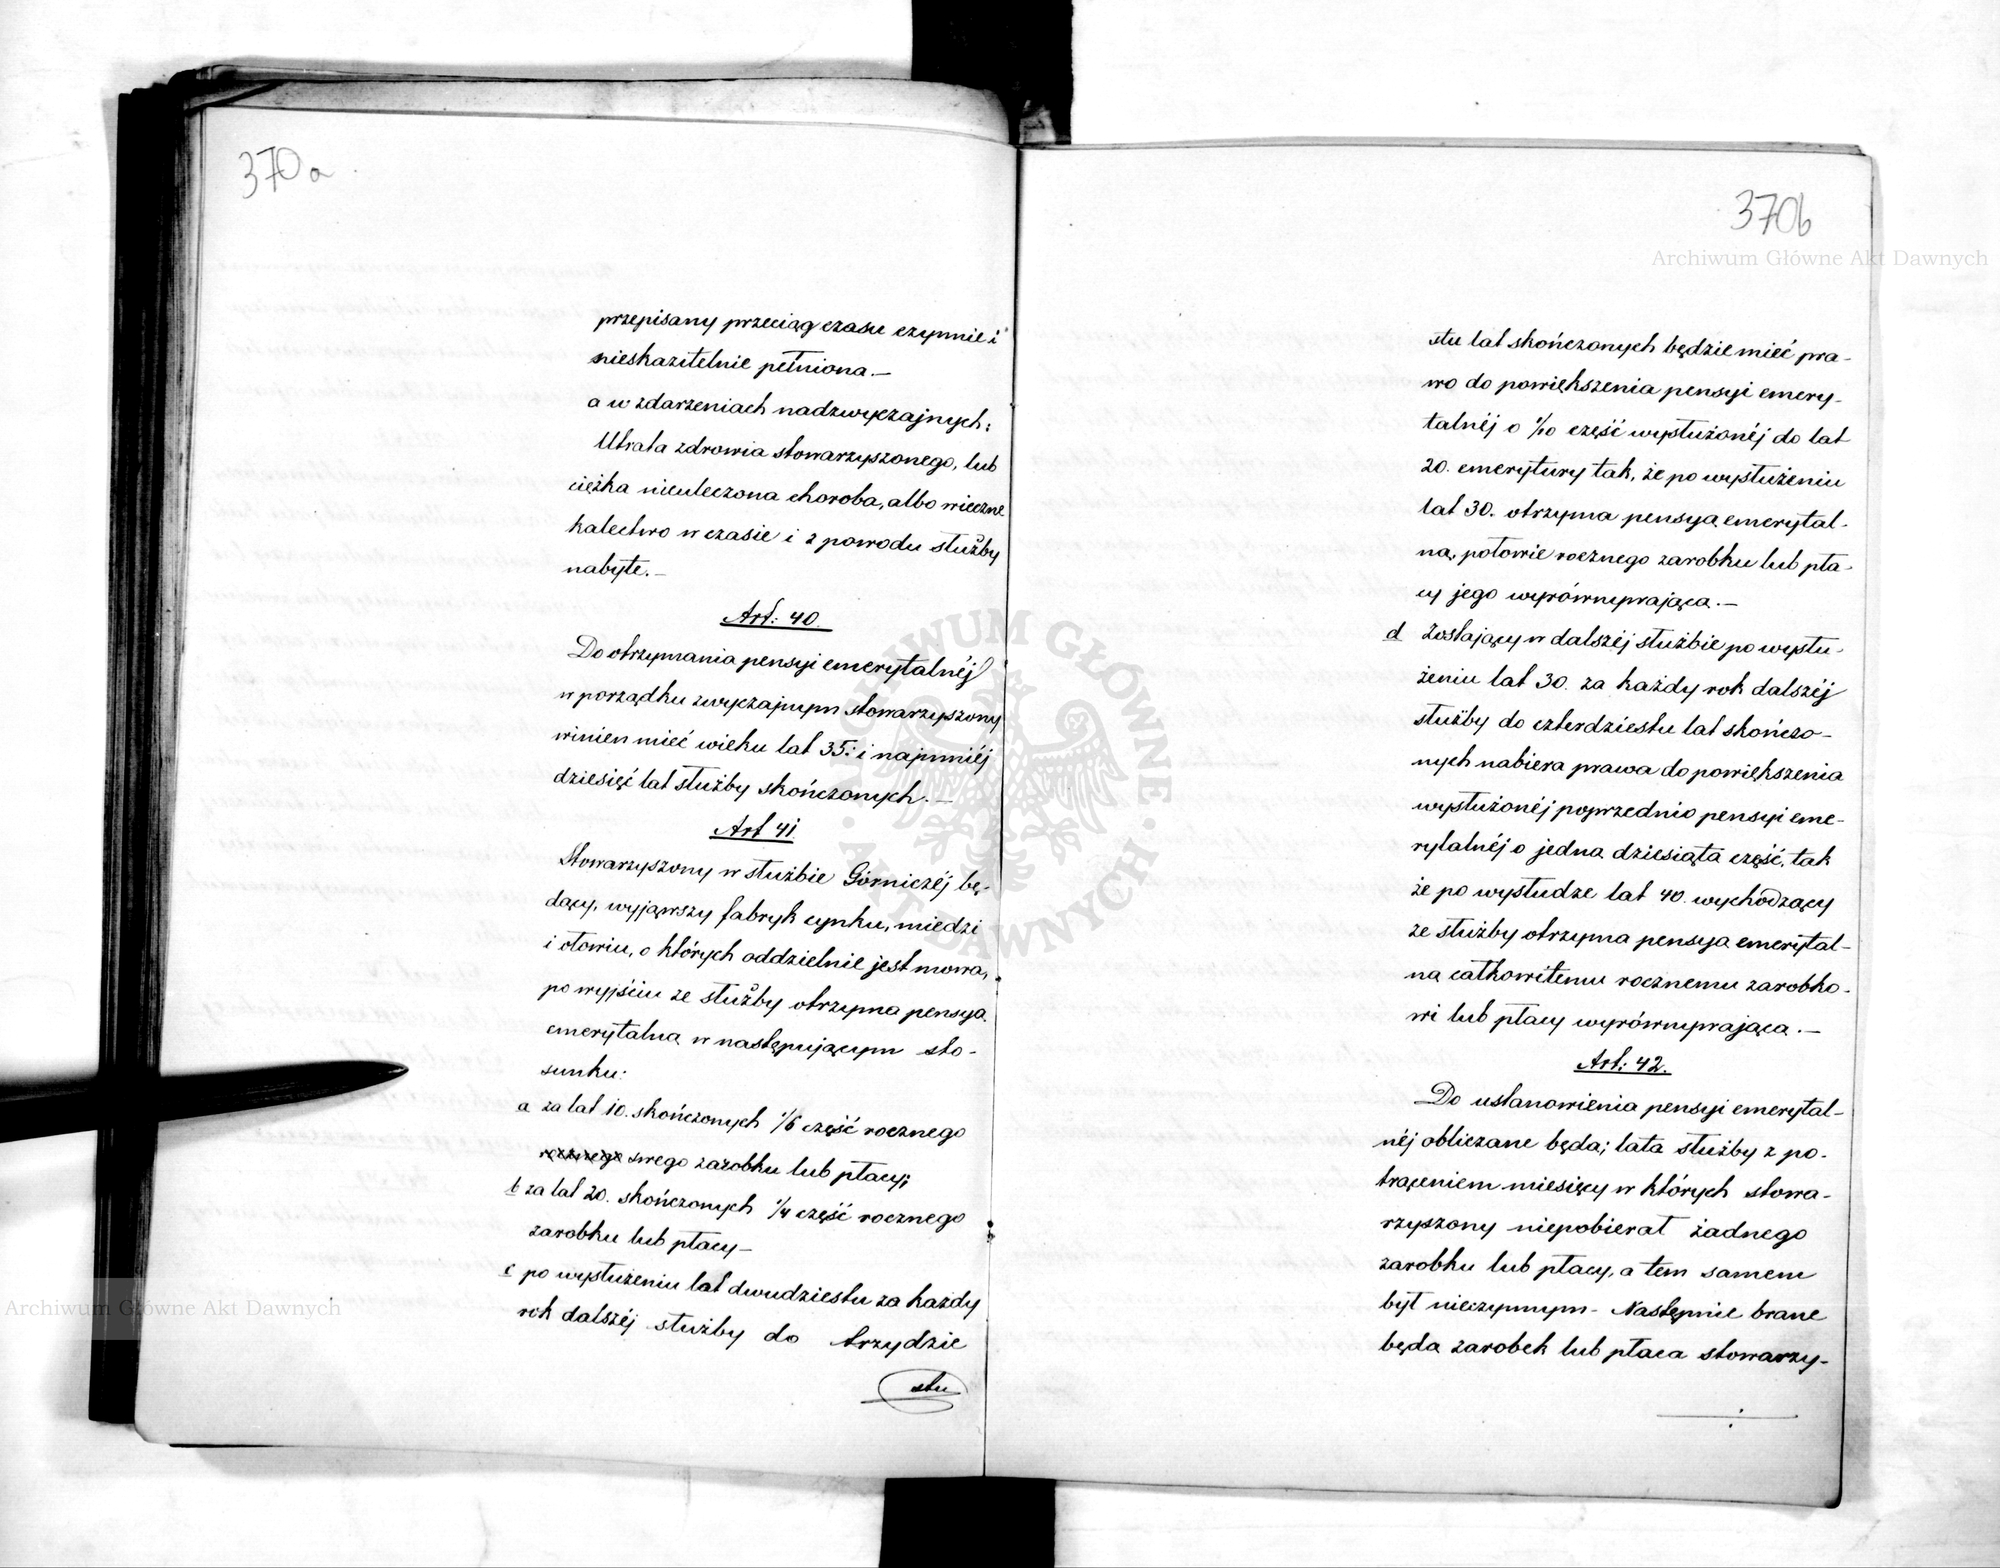 370a
przepisany przeciąg czasu czynnie i
nieskazitelnie pełniona.—
a w zdarzeniach nadzwyczajnych:
Utrata zdrowia stowarzyszonego, lub
ciężka nieuleczona choroba, albo wieczne
kalectwo w czasie i z powodu służby
nabyte.—
Art: 40.
Do otrzymania pensyi emerytalnéj
w porządku zwyczajnym stowarzyszony
winien mieć wieku lat 35: i najmniéj
dziesięć lat służby skończonych.—
Art 41.
Stowarzyszony w służbie Górniczéj bę-
dący, wyjąwszy fabryk cynku, miedzi
i ołowiu, o których oddzielnie jest mowa,
po wyjściu ze służby otrzyma pensyą
emerytalną w następującym sto-
sunku:
a za lat 10. skończonych 1/6 część rocznego
rocznego swego zarobku lub płacy;
b za lat 20. skończonych 1/4 część rocznego
zarobku lub płacy—
c po wysłużeniu lat dwudziestu za każdy
rok dalszéj służby do trzydzie
stu
370b
stu lat skończonych będzie mieć pra-
wo do powiększenia pensyi emery-
talnéj o 1/10 część wysłużonéj do lat
20. emerytury tak, że po wysłużeniu
lat 30. otrzyma pensyą emerytal-
ną, połowie rocznego zarobku lub pła-
cy jego wyrównywającą.—
d Zostający w dalszéj służbie po wysłu-
żeniu lat 30. za każdy rok dalszéj
służby do czterdziestu lat skończo-
nych nabiera prawa do powiększenia
wysłużonéj poprzednio pensyi eme-
rytalnéj o jedną dziesiątą część, tak
że po wysłudze lat 40. wychodzący
ze służby otrzyma pensyą emerytal-
ną całkowitemu rocznemu zarobko-
wi lub płacy wyrównywającą.—
Art: 42.
Do ustanowienia pensyi emerytal-
néj obliczane będą; lata służby z po-
trąceniem miesięcy w których stowa-
rzyszony niepobierał żadnego
zarobku lub płacy, a tem samem
był nieczynnym- Następnie brane
będą zarobek lub płaca stowarzy-
Archiwum Główne Akt Dawnych
Archiwum Główne Akt Dawnych
ARCHIWUM GŁÓWNE · AKT DAWNYCH ·